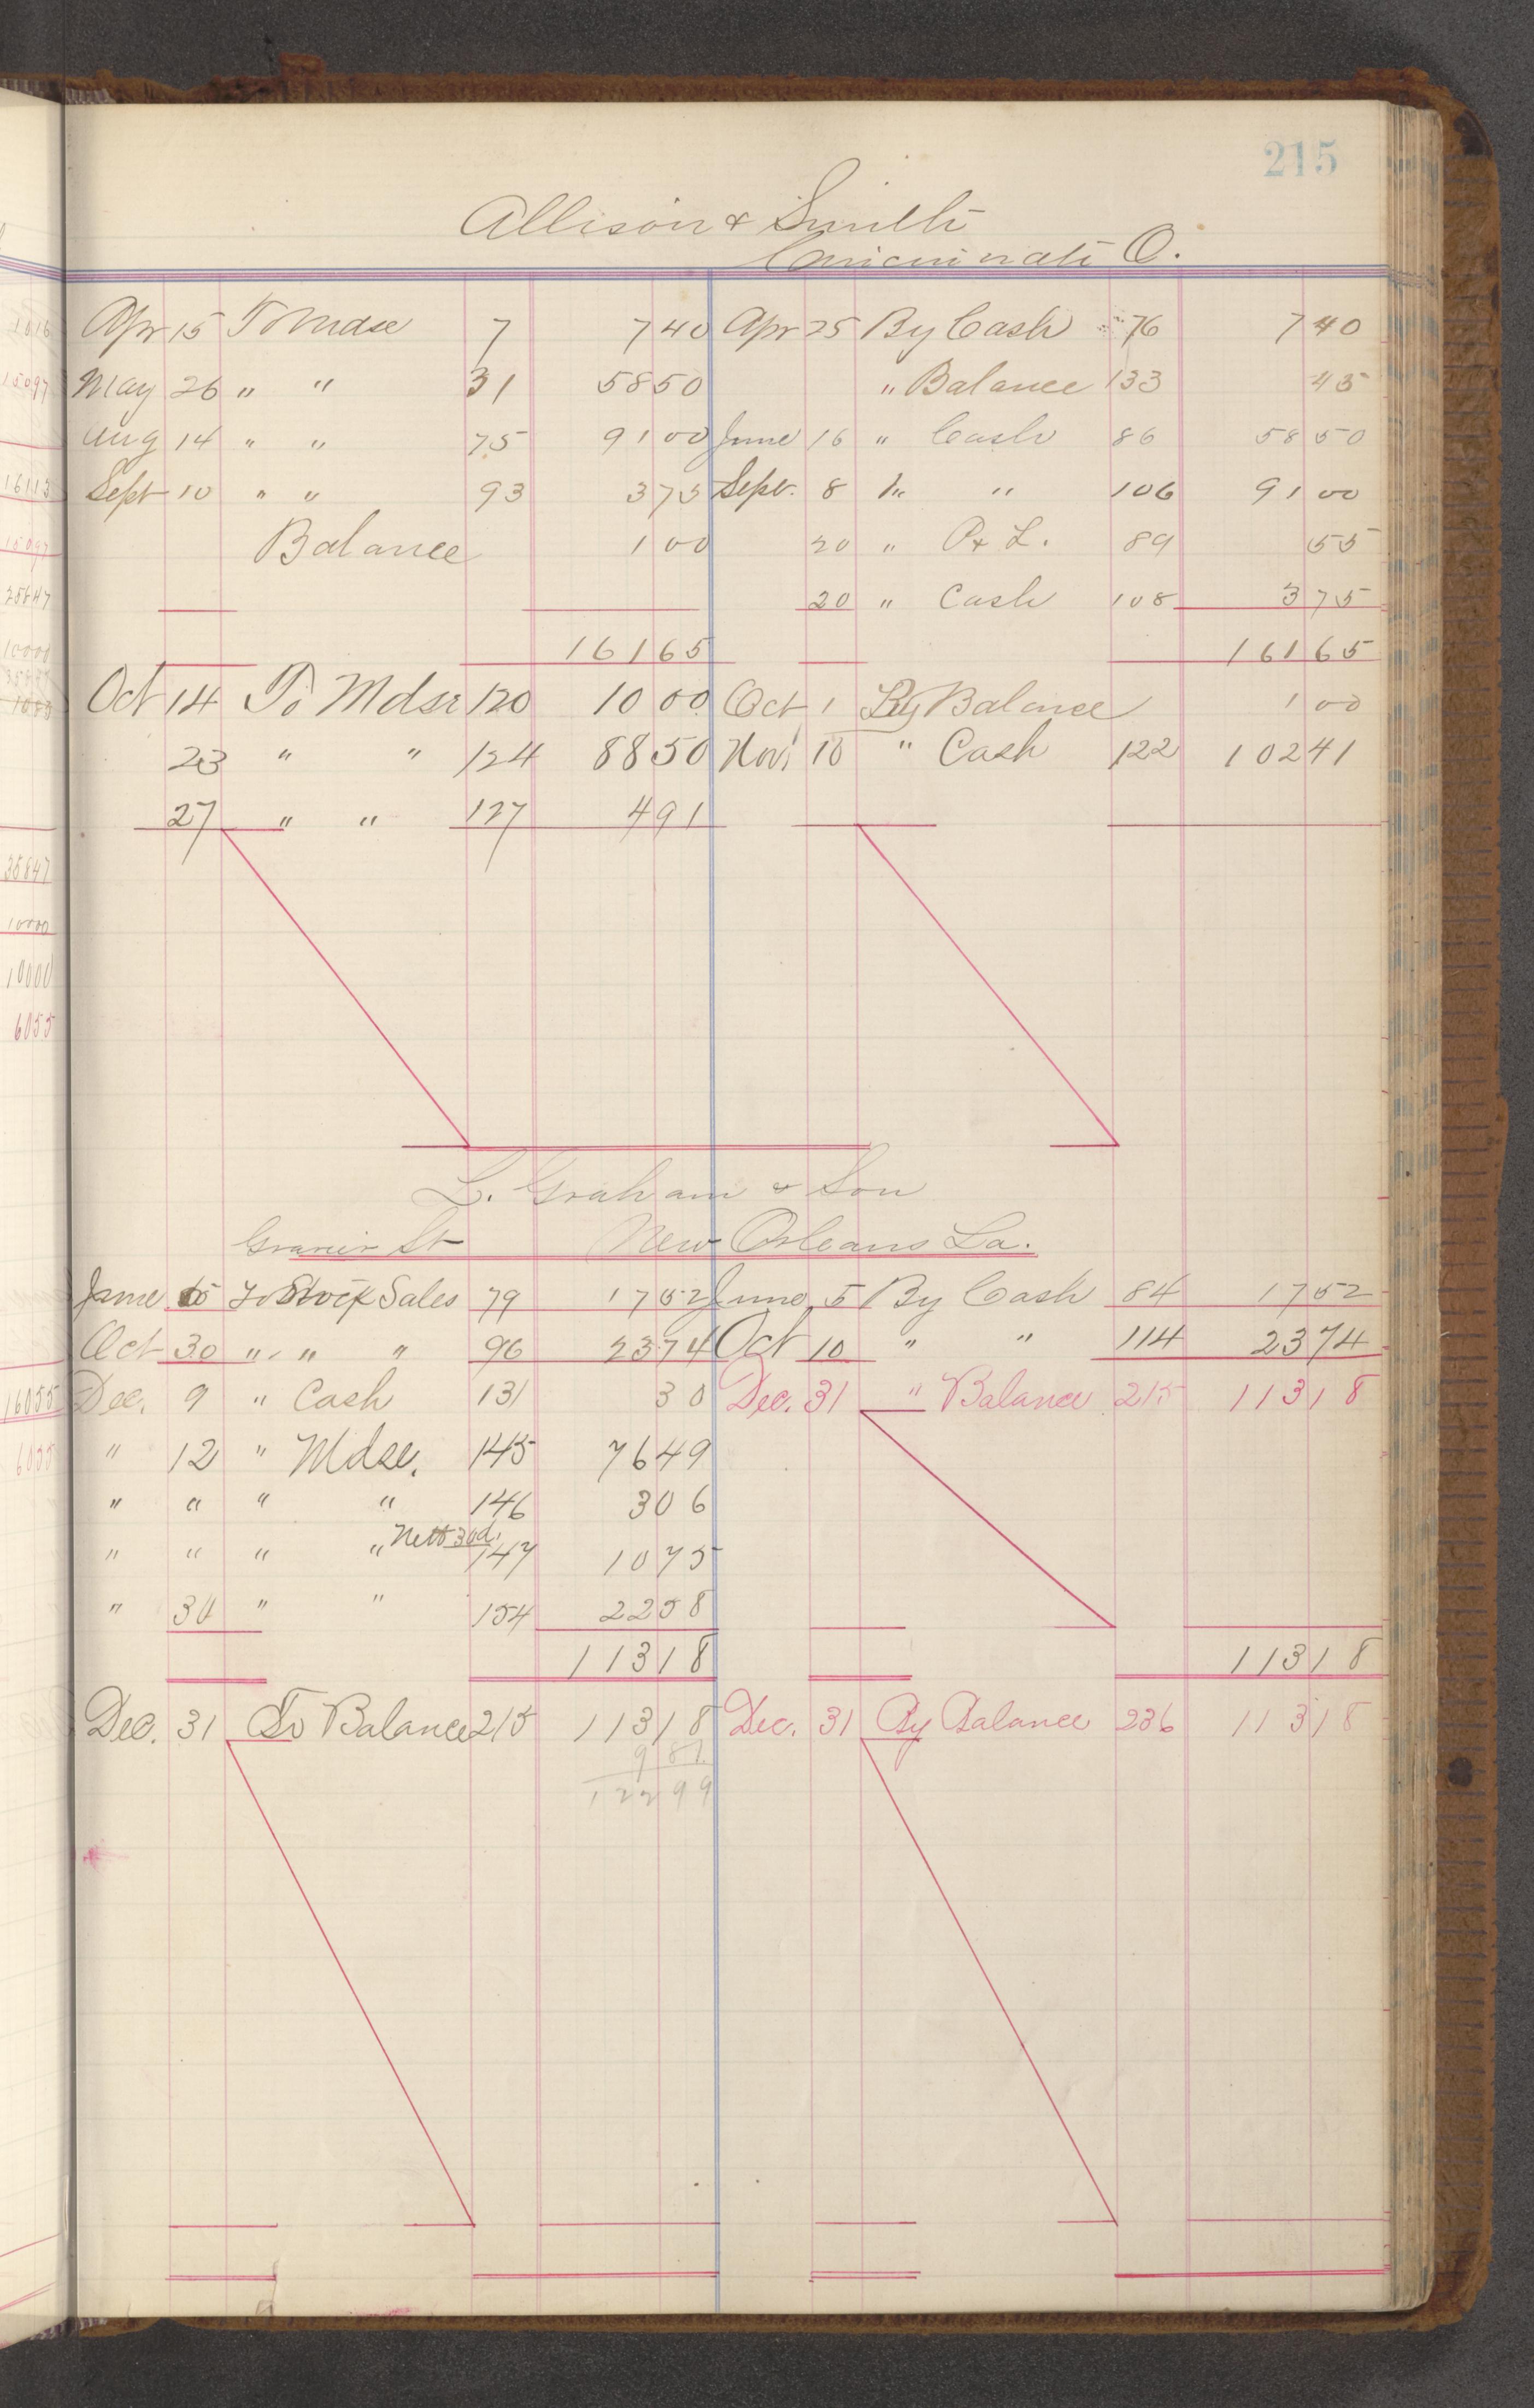 215
Allison & Smith
Cincinnati O.
Apr 15 To Mdse 7 7 40 Apr 25 By Cash 76 7 40
May 26 " " 31 58 50 " Balance 133 45
Aug 14 " " 75 91 00 June 16 " Cash 86 58 50
Sept 10 " " 93 3 75 Sept. 8 " " 106 91 00
Balance 1 00 20 " P & L. 89 55
20 " Cash 108 3 75
161 65 161 65
Oct 14 To Mdse 120 10 00 Oct 1 By Balance 1 00
23 " " 124 88 50 Nov. 10 " Cash 122 102 41
27 " " 127 4 91
L. Graham & Son
Gravier St New Orleans La.
June To Stock Sales 79 17 52 June 5 By Cash 84 17 52
Oct 30 " " " 96 23 74 Oct 10 " " 114 23 74
Dec. 9 " Cash 131 30 Dec. 31 " Balance 215 113 18
" 12 " Mdse. 145 76 49
" " " " 146 3 06
" " " " Nett 30d. 147 10 75
" 30 " " 154 22 58
113 18 113 18
Dec. 31 To Balance 215 113 18 Dec. 31 By Balance 236 113 18
9 81
122 99